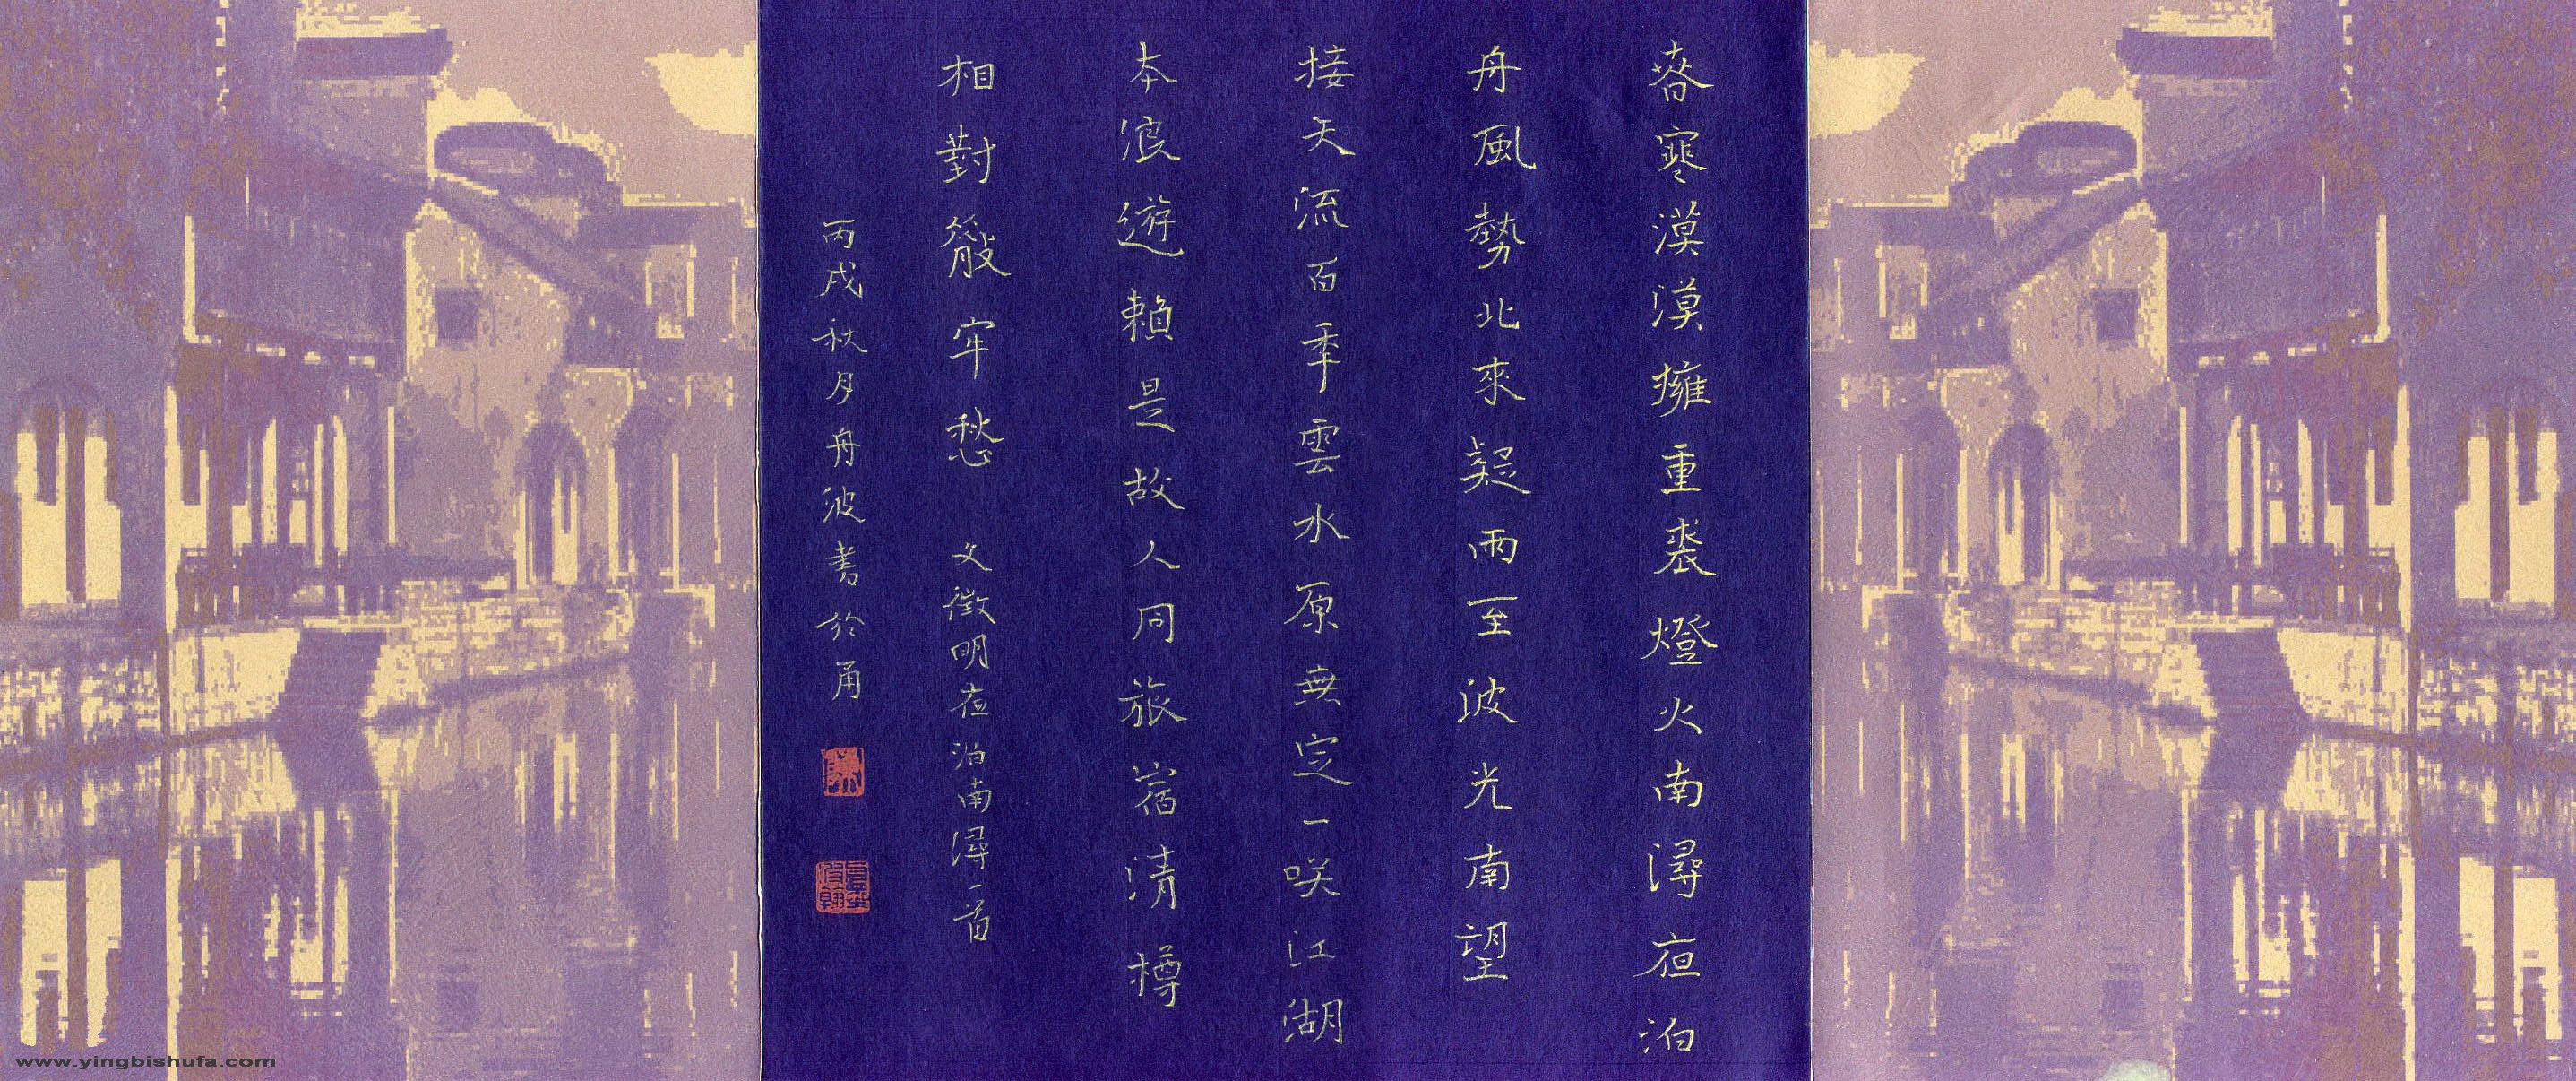 春寒漠漠擁重裘燈火南潯夜泊
舟風勢北來疑雨至波光南望
接天流百年雲水原無定一笑江湖
本浪遊賴是故人同旅宿清樽
相對散牢愁 文徵明夜泊南潯一首
丙戌秋月舟波書於甬
www.yingbishufa.com